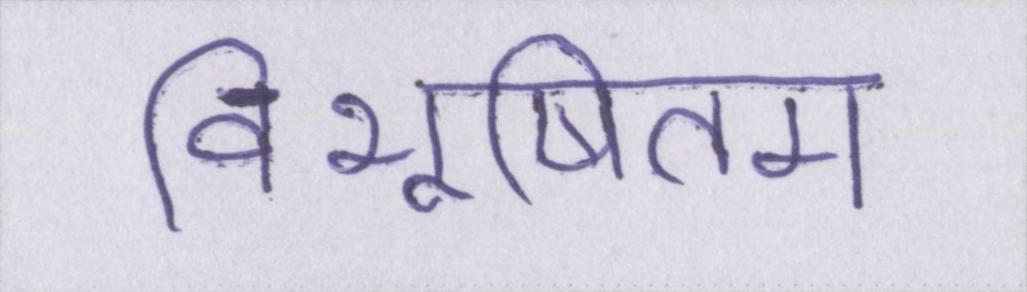 विभूषितम